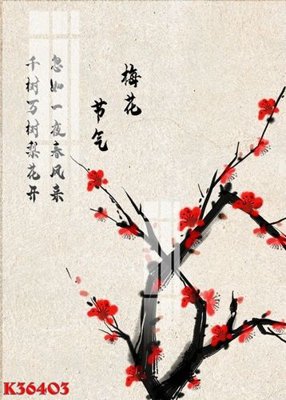 梅花
节气
忽如一夜春风来
千树万树梨花开
K36403